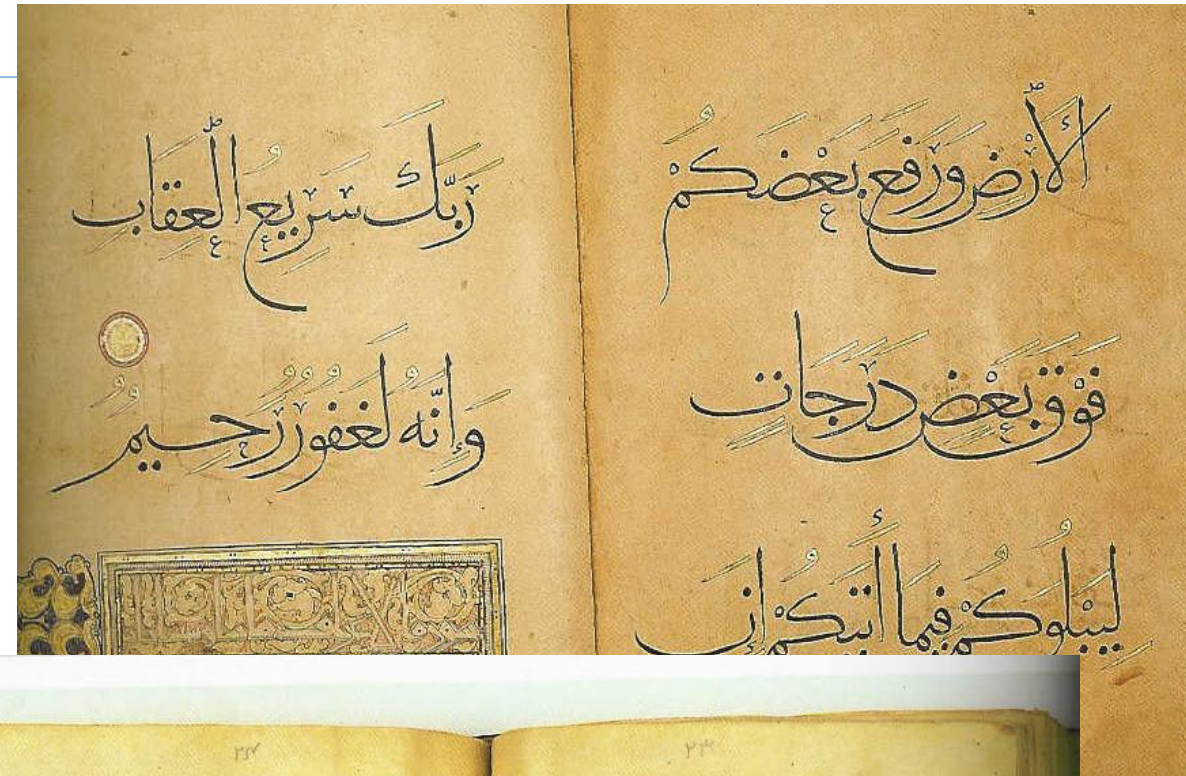 ٱلْأَرْضِ وَرَفَعَ بَعْضَكُمْ
فَوْقَ بَعْضٍ دَرَجَاتٍ
لِيَبْلُوَكُمْ فِيمَا أَتَيكُمْ إِنَّ
رَبَّكَ سَرِيعُ ٱلْعِقَابِ
وَإِنَّهُ لَغَفُورٌ رَحِيمٌ